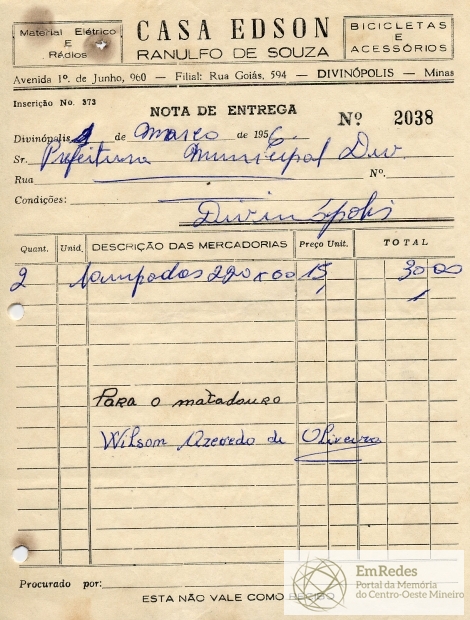 Material Elétrico
E
Rádios
CASA EDSON
RANULFO DE SOUZA
BICICLETAS
E
ACESSÓRIOS
Avenida 1º. de Junho, 960 — Filial: Rua Goiás, 594 — DIVINÓPOLIS — Minas
Inscrição No. 373
NOTA DE ENTREGA Nº 2038
Divinópolis de Março de 1956
Sr. Prefeitura Municipal Div.
Rua Nº.
Condições:
Divinópolis
Quant. Unid. DESCRIÇÃO DAS MERCADORIAS Preço Unit. TOTAL
2 Lampadas 220 x 60 15 30 00
Para o matadouro
Wilson Azevedo de Oliveira
Procurado por:
ESTA NÃO VALE COMO RECIBO
EmRedes
Portal da Memória
do Centro-Oeste Mineiro